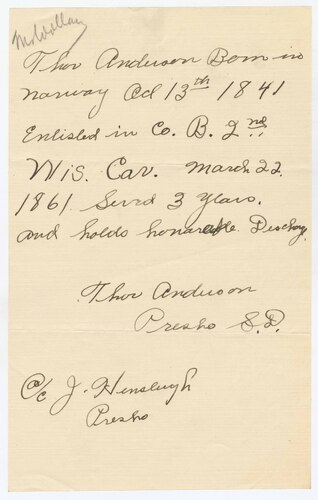 McWollan
Thor Anderson Born in
Narway Oct 13th 1841
Enlisted in Co. B. 2nd
Wis. Cav. March 22
1861 Servd 3 Years.
and holds honarable Dischag.
Thor Anderson
Presho S.D.
c/c J. Hensleigh
Presho